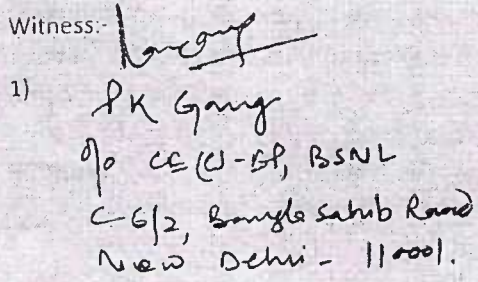 Witness:-
1)
PK Garg
O/o CE (C)-EP, BSNL
C-6/2, Bangla Sahib Road
New Delhi - 110001.